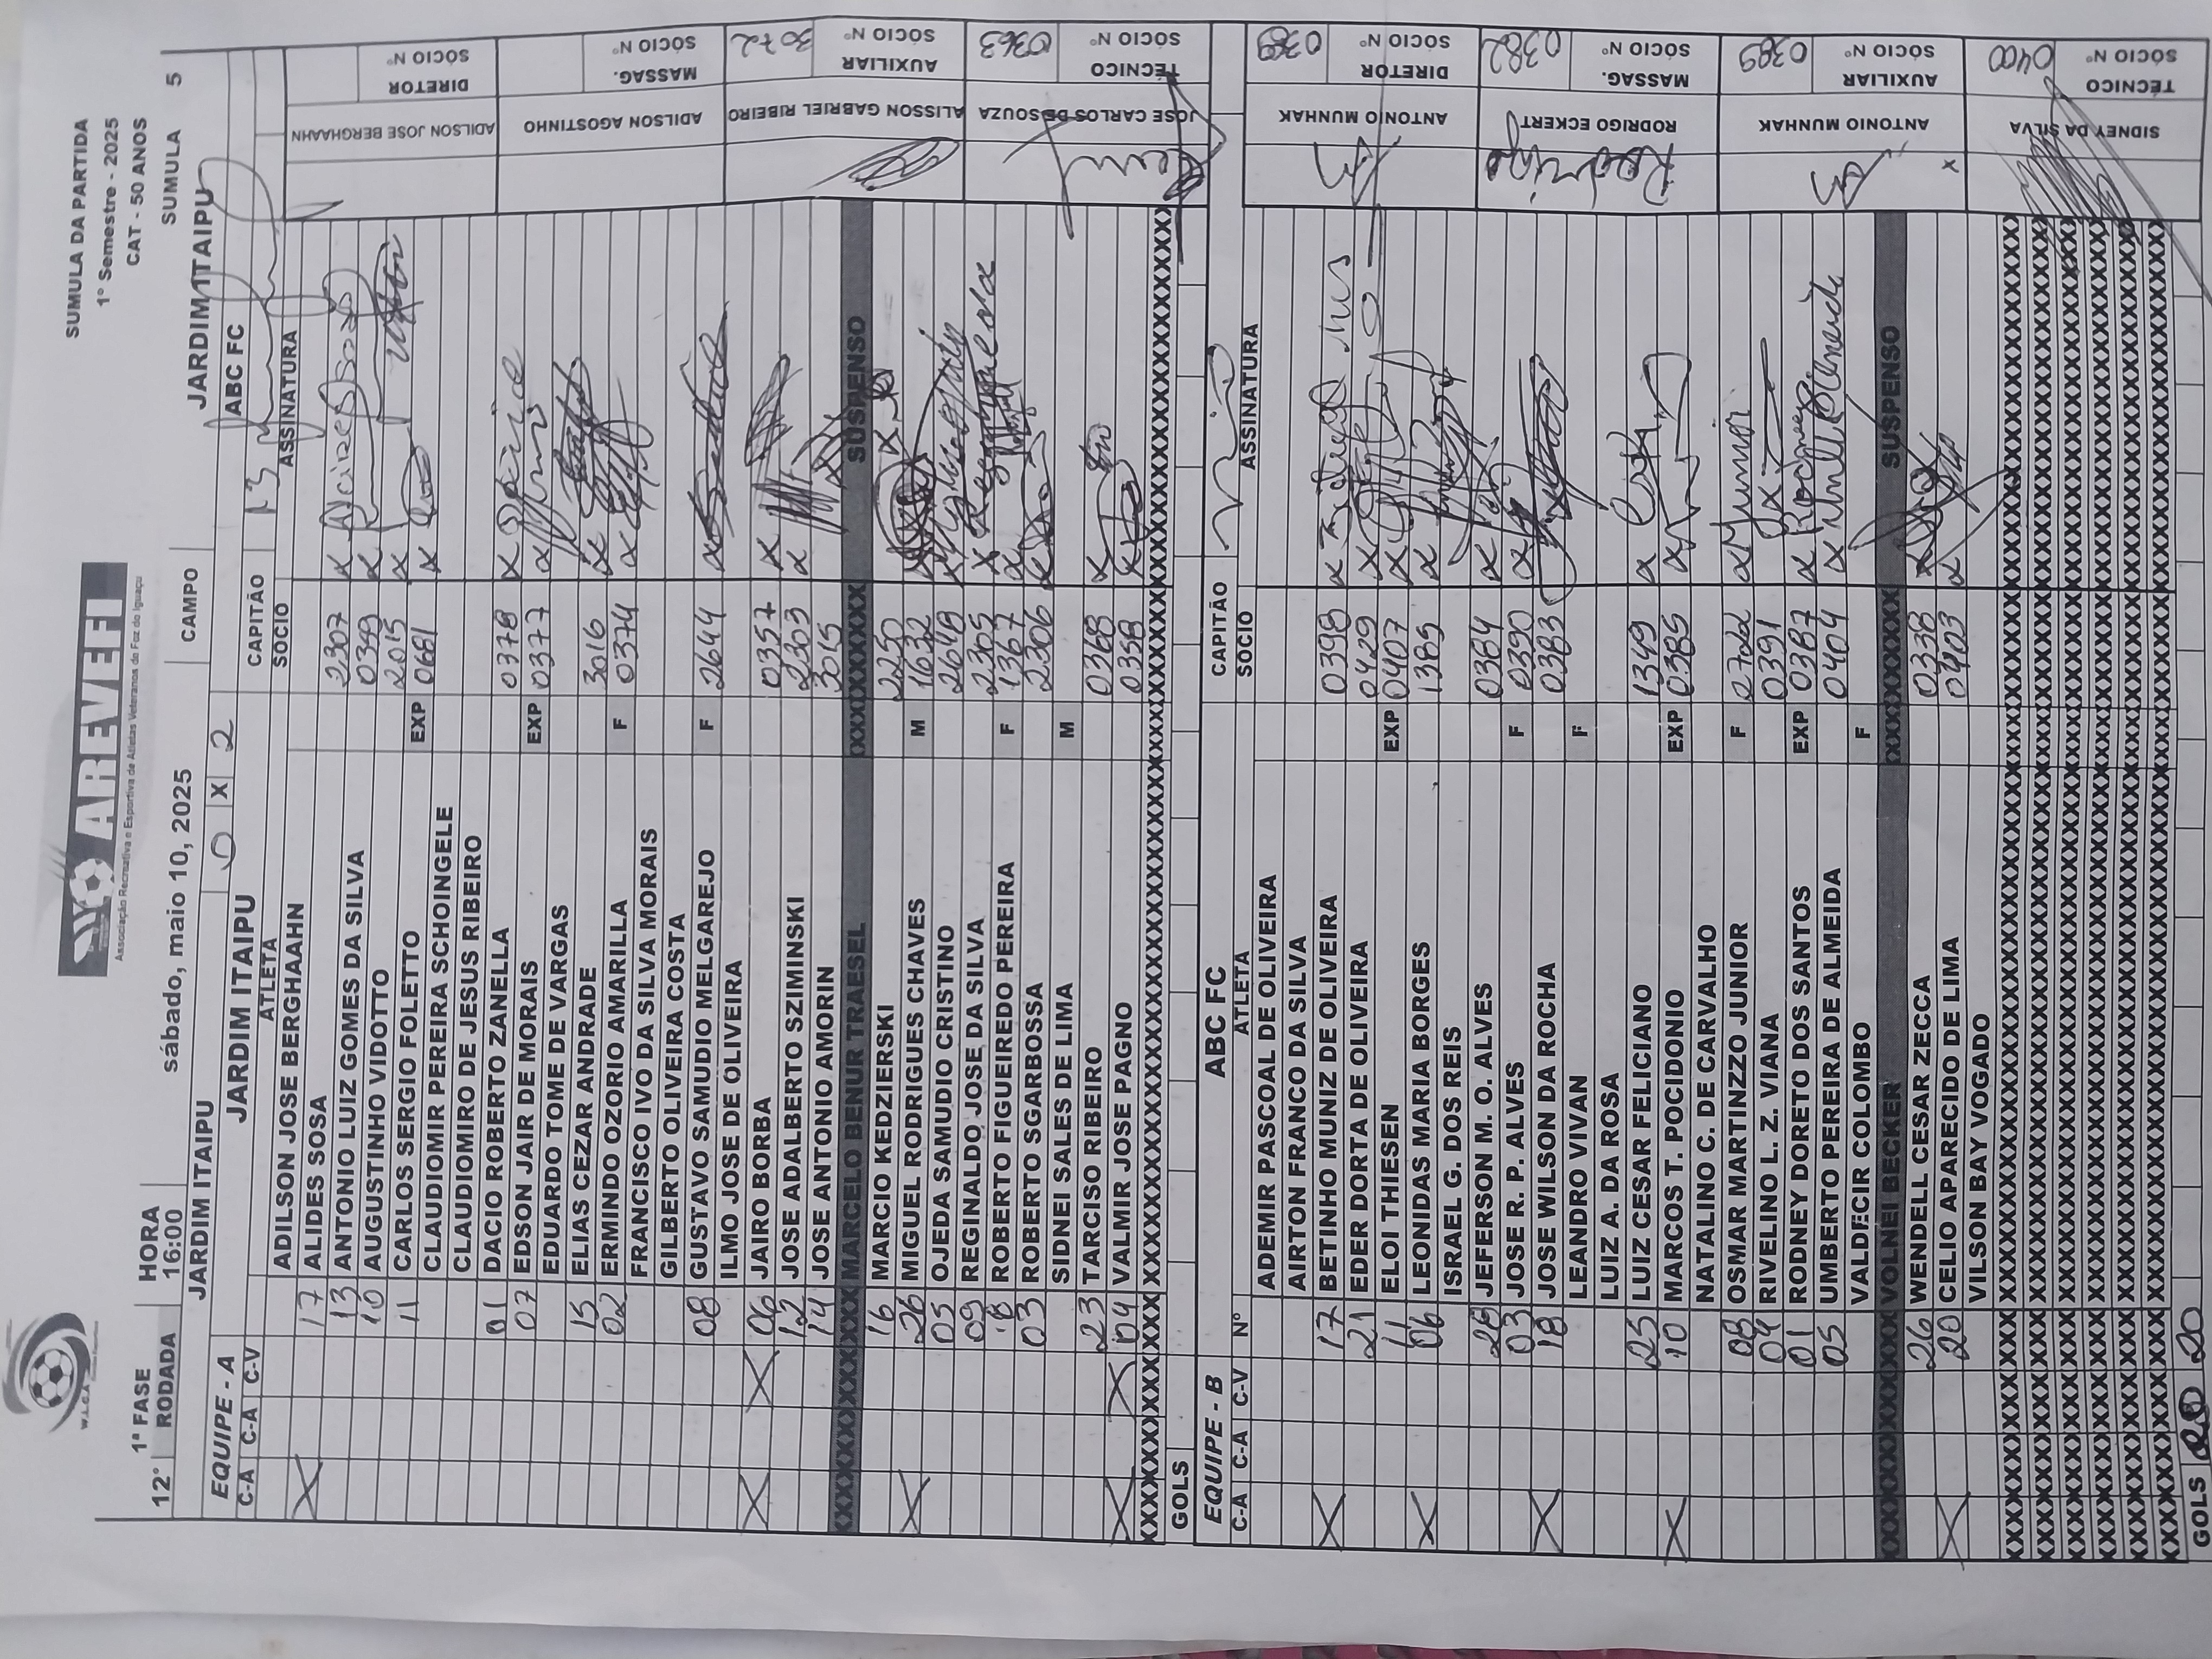 SUMULA DA PARTIDA
1º Semestre - 2025
CAT - 50 ANOS
W.L.C.A
AREVEFI
Associação Recreativa e Esportiva de Atletas Veteranos de Foz do Iguaçu
1ª FASE HORA sábado, maio 10, 2025 CAMPO SUMULA 5
12º RODADA 16:00 JARDIM ITAIPU
JARDIM ITAIPU 0 X 2 ABC FC
EQUIPE - A JARDIM ITAIPU CAPITÃO 13
C-A C-A C-V ATLETA SOCIO ASSINATURA
ADILSON JOSE BERGHAAHN
X 17 ALIDES SOSA 2307
13 ANTONIO LUIZ GOMES DA SILVA 0349
10 AUGUSTINHO VIDOTTO 2015
11 CARLOS SERGIO FOLETTO EXP 0681
CLAUDIOMIR PEREIRA SCHOINGELE
CLAUDIOMIRO DE JESUS RIBEIRO
01 DACIO ROBERTO ZANELLA 0378
07 EDSON JAIR DE MORAIS EXP 0377
EDUARDO TOME DE VARGAS
15 ELIAS CEZAR ANDRADE 3016
02 ERMINDO OZORIO AMARILLA F 0374
FRANCISCO IVO DA SILVA MORAIS
GILBERTO OLIVEIRA COSTA
08 GUSTAVO SAMUDIO MELGAREJO F 2644
ILMO JOSE DE OLIVEIRA
X X 06 JAIRO BORBA 0357
12 JOSE ADALBERTO SZIMINSKI 2303
14 JOSE ANTONIO AMORIN 3015
MARCELO BENUR TRAESEL SUSPENSO
16 MARCIO KEDZIERSKI 2250
X 26 MIGUEL RODRIGUES CHAVES M 1632
05 OJEDA SAMUDIO CRISTINO 2648
09 REGINALDO JOSE DA SILVA 2305
18 ROBERTO FIGUEIREDO PEREIRA F 1367
03 ROBERTO SGARBOSSA 2306
SIDNEI SALES DE LIMA M
23 TARCISO RIBEIRO 0368
X X 04 VALMIR JOSE PAGNO 0358
GOLS
ADILSON JOSE BERGHAAHN DIRETOR SÓCIO Nº
ADILSON AGOSTINHO MASSAG. SÓCIO Nº
ALISSON GABRIEL RIBEIRO AUXILIAR SÓCIO Nº 3072
JOSE CARLOS DE SOUZA TÉCNICO SÓCIO Nº 0363
EQUIPE - B ABC FC CAPITÃO
C-A C-A C-V Nº ATLETA SOCIO ASSINATURA
ADEMIR PASCOAL DE OLIVEIRA
AIRTON FRANCO DA SILVA
X 17 BETINHO MUNIZ DE OLIVEIRA 0398
21 EDER DORTA DE OLIVEIRA 0429
11 ELOI THIESEN EXP 0407
X 06 LEONIDAS MARIA BORGES 1385
ISRAEL G. DOS REIS
28 JEFERSON M. O. ALVES 0364
03 JOSE R. P. ALVES F 0390
X 18 JOSE WILSON DA ROCHA 0383
LEANDRO VIVAN F
LUIZ A. DA ROSA
25 LUIZ CESAR FELICIANO 1349
X 10 MARCOS T. POCIDONIO EXP 0385
NATALINO C. DE CARVALHO
08 OSMAR MARTINZZO JUNIOR F 2702
04 RIVELINO L. Z. VIANA 0391
01 RODNEY DORETO DOS SANTOS EXP 0387
05 UMBERTO PEREIRA DE ALMEIDA 0404
VALDECIR COLOMBO F
VOLNEI BECKER SUSPENSO
26 WENDELL CESAR ZECCA 0338
X 20 CELIO APARECIDO DE LIMA 0403
VILSON BAY VOGADO
GOLS 20
ANTONIO MUNHAK DIRETOR SÓCIO Nº 0389
RODRIGO ECKERT MASSAG. SÓCIO Nº 0382
ANTONIO MUNHAK AUXILIAR SÓCIO Nº 0389
SIDNEY DA SILVA TÉCNICO SÓCIO Nº 0400